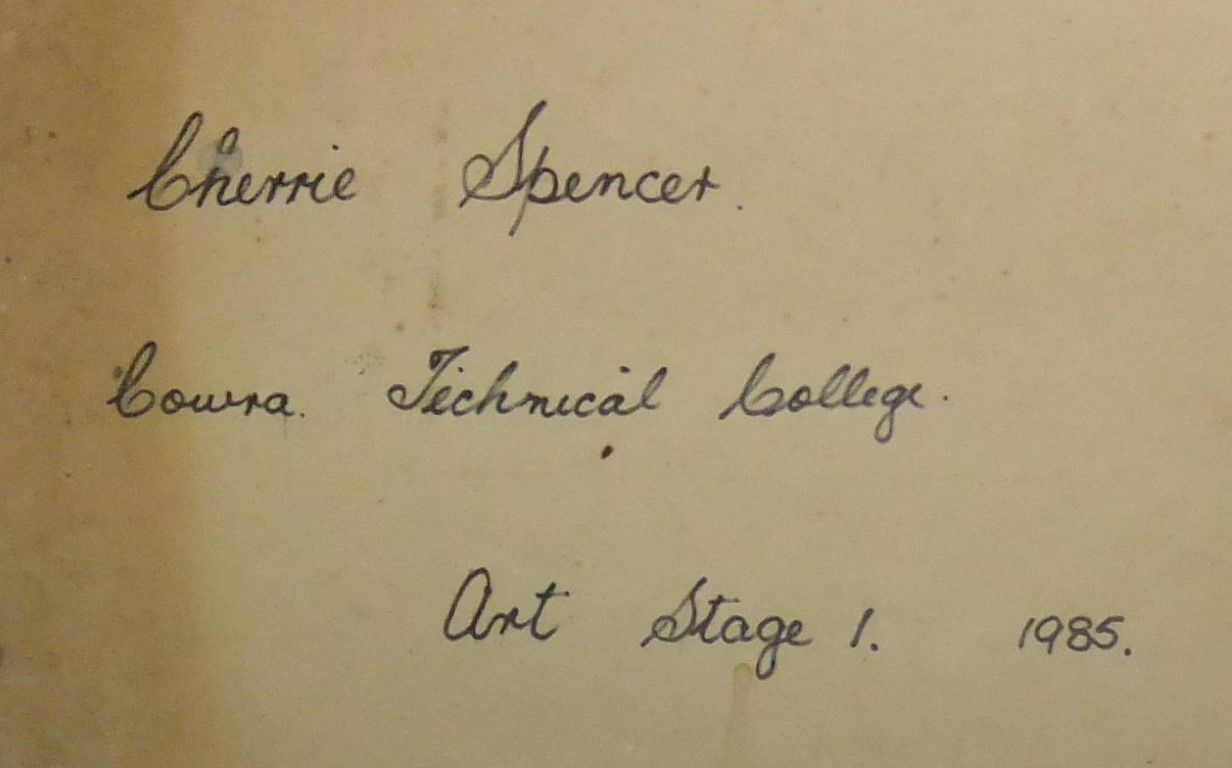 Cherrie Spencer.
Cowra. Technical College.
Art Stage 1. 1985.